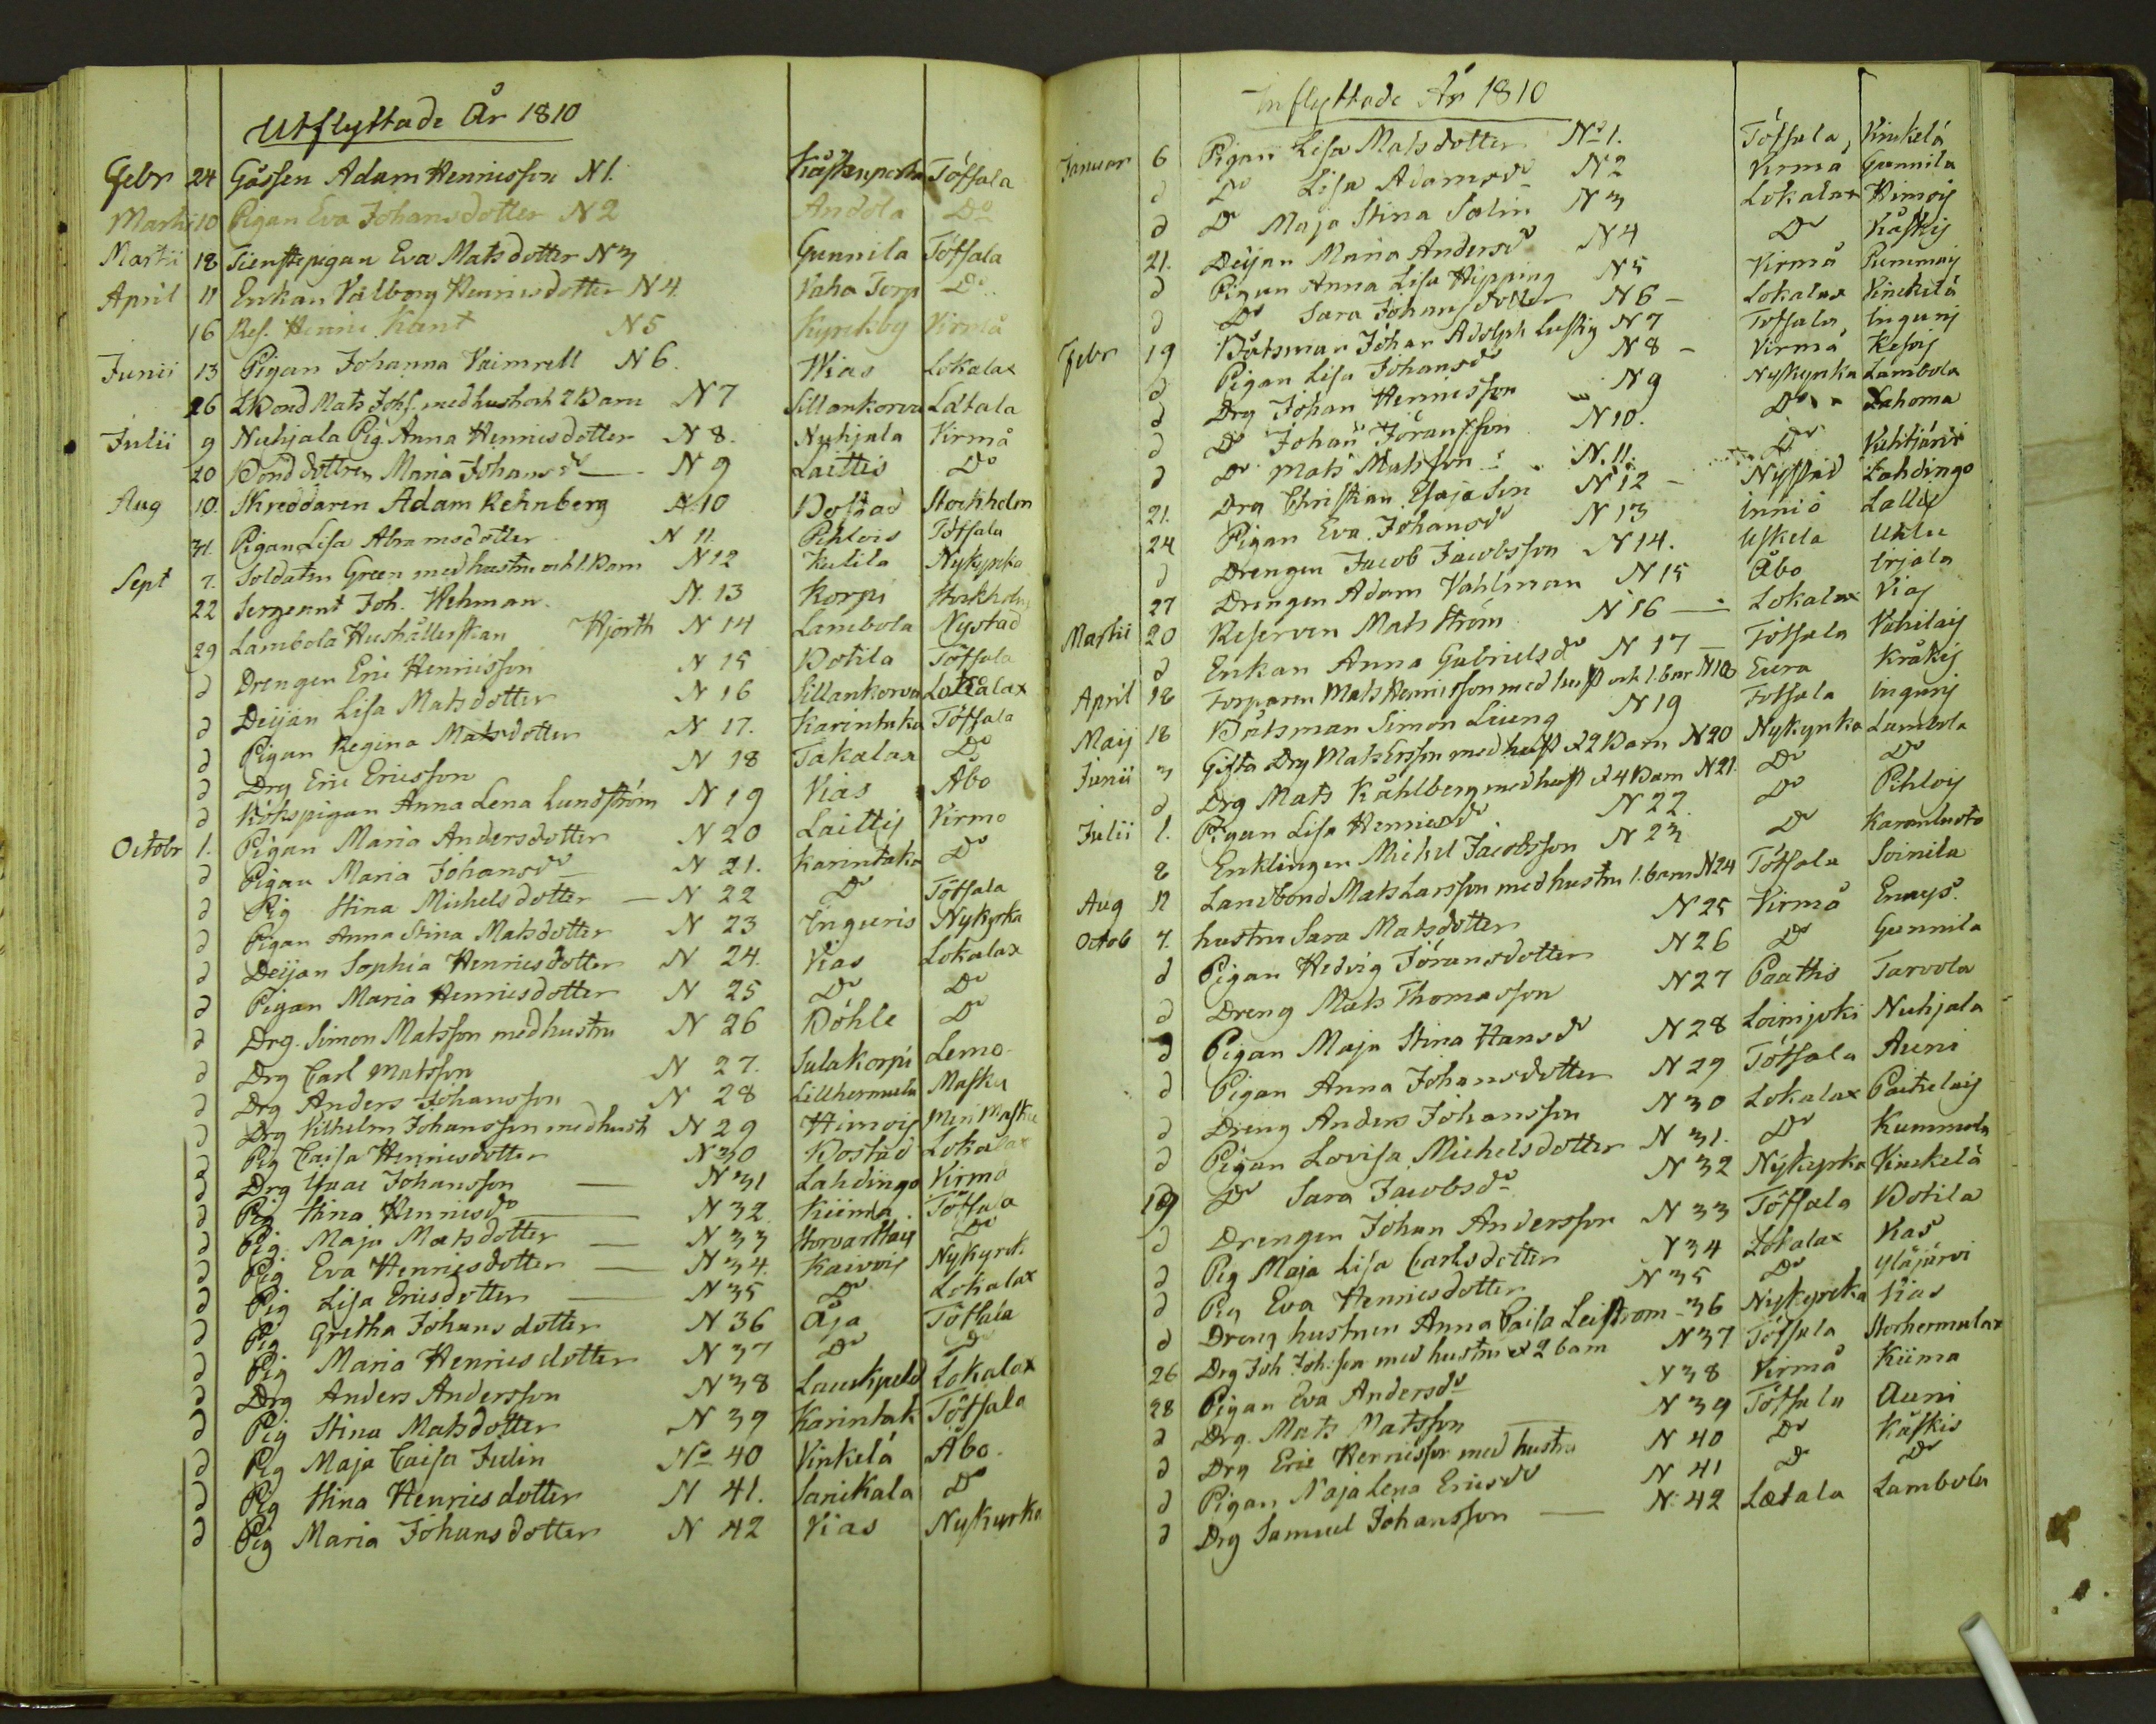 Utflyttade År 1810
Febr 24 Gåssen Adam Henricsson N 1. Töffsala
Martii 10 Pigan Eva Johansdotter N 2 Andola Do
Martii 18 Tienstepigan Eva Matsdotter N 3 Gunnila Töfsala
April 11 Enkan Valborg Henricsdotter N 4. Vaha Torp Do
16 Res. Henric Kant N 5 Kyrckby Virmå
Junii 13 Pigan Johanna Vaimrell N 6. Wias Lokalax
26 LBond Mats Johs. med hust och 2 Barn N 7 Sillankorva Lätala
Julii 9 Nuhjala Pig. Anna Henricsdotter N 8. Nuhjala Virmå
20 Bond dottren Maria Johansdr N 9 Laittis Do
Aug 10. Skreddaren Adam Rehnberg N 10 Bostad Stockholm
31. Pigan Lisa Abramsdotter N 11. Pehlois Töfsala
Sept 7. Soldaten Green med hustru och 1. Barn N 12 Kulila Nykyrka
22 Sergeant Joh. Wehman. N. 13 Korpi
29 Lambola Hushållerskan Hjorth N 14 Lambola Nystad
d Drengen Eric Henricsson N 15 Botila Töffsala
d Deijan Lisa Matsdotter N 16 Sillankorva
d Pigan Regina Matsdotter N 17. Karintaka Töffsala
d Drg Eric Ericsson N 18 Takalax Do
d Kökspigan Anna Lena Lundström N 19 Vias Åbo
Octobr 1. Pigan Maria Andersdotter N 20 Laittis Virmo
d Pigan Maria Johansdr N 21. Karintaka Do
d Pig Stina Michelsdotter N 22 Do Töffsala
d Pigan Anna Stina Matsdotter N 23 Inguris Nykyrka
d Deijan Sophia Henricsdotter N 24. Vias Lokalax
d Pigan Maria Henricsdotter N 25 Do Do
d Drg. Simon Matsson med hustru N 26 Böhle Do
d Drg Carl Matsson N 27. Sulakorpi Lemo
d Drg Anders Johansson N 28 Lillhermula Masku
d Drg Vilhelm Johansson med hust N 29 Himois
d Pig Caisa Henricsdotter N 30 Bostad Lokalax
d Drg Isaac Johansson N 31 Lahdingo Virmo
d Pig Stina Henricsdr N 32. Kiima Töffsala
d Pig Maja Matsdotter N 33 Do
d Pig Eva Henricsdotter N 34. Kaivois Nykyrck
d Pig Lisa Ericsdotter N 35 Do Lokalax
d Pig Gretha Johansdotter N 36 Åja Töffsala
d Pig Maria Henricsdotter N 37 Do Do
d Drg Anders Andersson N 38 Lokalax
d Pig Stina Matsdotter N 39 Karintak Töffsala
d Pig Maja Caisa Julin No 40 Vinkelä Åbo.
d Pig Stina Henricsdotter N 41. Sarikala Do
d Pig Maria Johansdotter N 42 Vias Nykyrka
Inflyttade År 1810
Januar 6 Pigan Lisa Matsdotter No 1. Töffsala, Vinkelä
d Do Lisa Adamsdr N 2 Virmå Gunnila
d Do Maja Stina Salin N 3 Lokalax Himois
21. Deijan Maria Andersdr N 4 Do Kåfkis
d Pigan Anna Lisa Hipping N 5 Virmå
d Do Sara Johansdotter N 6 Lokalax Vinckelä
Febr 19 Båtsman Johan Adolph N 7 Töffsala Ingaris
d Pigan Lisa Johansdr N 8 Virmå
d Drg Johan Henricsson N 9 Nykyrka Lambola
d Do Johan Jöransson N 10. Do Lahoma
d Do Mats Matsson N. 11. Do
21. Drg Christian Esajason N 12 Nystad Lahdingo
24 Pigan Eva Johansdr N 13 Inniö
d Drengen Jacob Jacobsson N 14. Uskela
27 Drengen Adam Vahlman N 15 Åbo Irjala
Martii 20 Reserven Mats Ström N 16 Lokalax Vias
d Enkan Anna Gabrielsdr N 17 Töffsala
April 18 Torparen Mats Henricsson med hust och 1. bar N 18 Eura
Maij 18 Båtsman Simon Liung N 19 Toffsala Ingaris
Junii 3 Gifta Drg Mats Ersson med hust & 2 Barn N 20 Nykyrka Lambola
d Drg Mats Kåhlberg med hust & 4 Barn N 21. Do Do
Julii 1. Pigan Lisa Henricsdr N 22 Do Pehlois
8 Enklingen Michel Jacobsson N 23 Do
Aug 12 Landbond Mats Larsson med hustru 1. barn N 24 Töffsala Soinila
Octob 7. hustru Sara Matsdotter N 25 Virmå
d Pigan Hedvig Jöransdotter N 26 Do Gunnila
d Dreng Mats Thomasson N 27 Paattis Tarvola
d Pigan Maja Stina Hansdr N 28 Loimjoki Nuhjala
d Pigan Anna Johansdotter N 29 Töffsala Auni
d Dreng Anders Johansson N 30 Lokalax
d Pigan Lovisa Michelsdotter N 31. Do Kummola
19 Do Sara Jacobsdr N 32 Nykyrka Vinckelä
d Drengen Johan Andersson N 33 Töffsala Botila
d Pig Maja Lisa Carlsdotter N 34 Lokalax
d Pig Eva Henricsdotter N 35 Do Yläjärvi
d Dreng hustrun Anna Caisa Leistrom 36 Nykyrcka Vias
26 Drg Joh. Johsson med hustru & 2 barn N 37 Töffsala Storhermulax
28 Pigan Eva Andersdr N 38 Virmå Kiima
d Drg. Mats Matsson N 39 Töffsala Auni
d Drg Eric Henricsson med hustru N 40 Do Kåfkis
d Pigan Maja Lena Ericsdr N 41 Do Do
d Drg Samuel Johansson N. 42 Letala Lambola